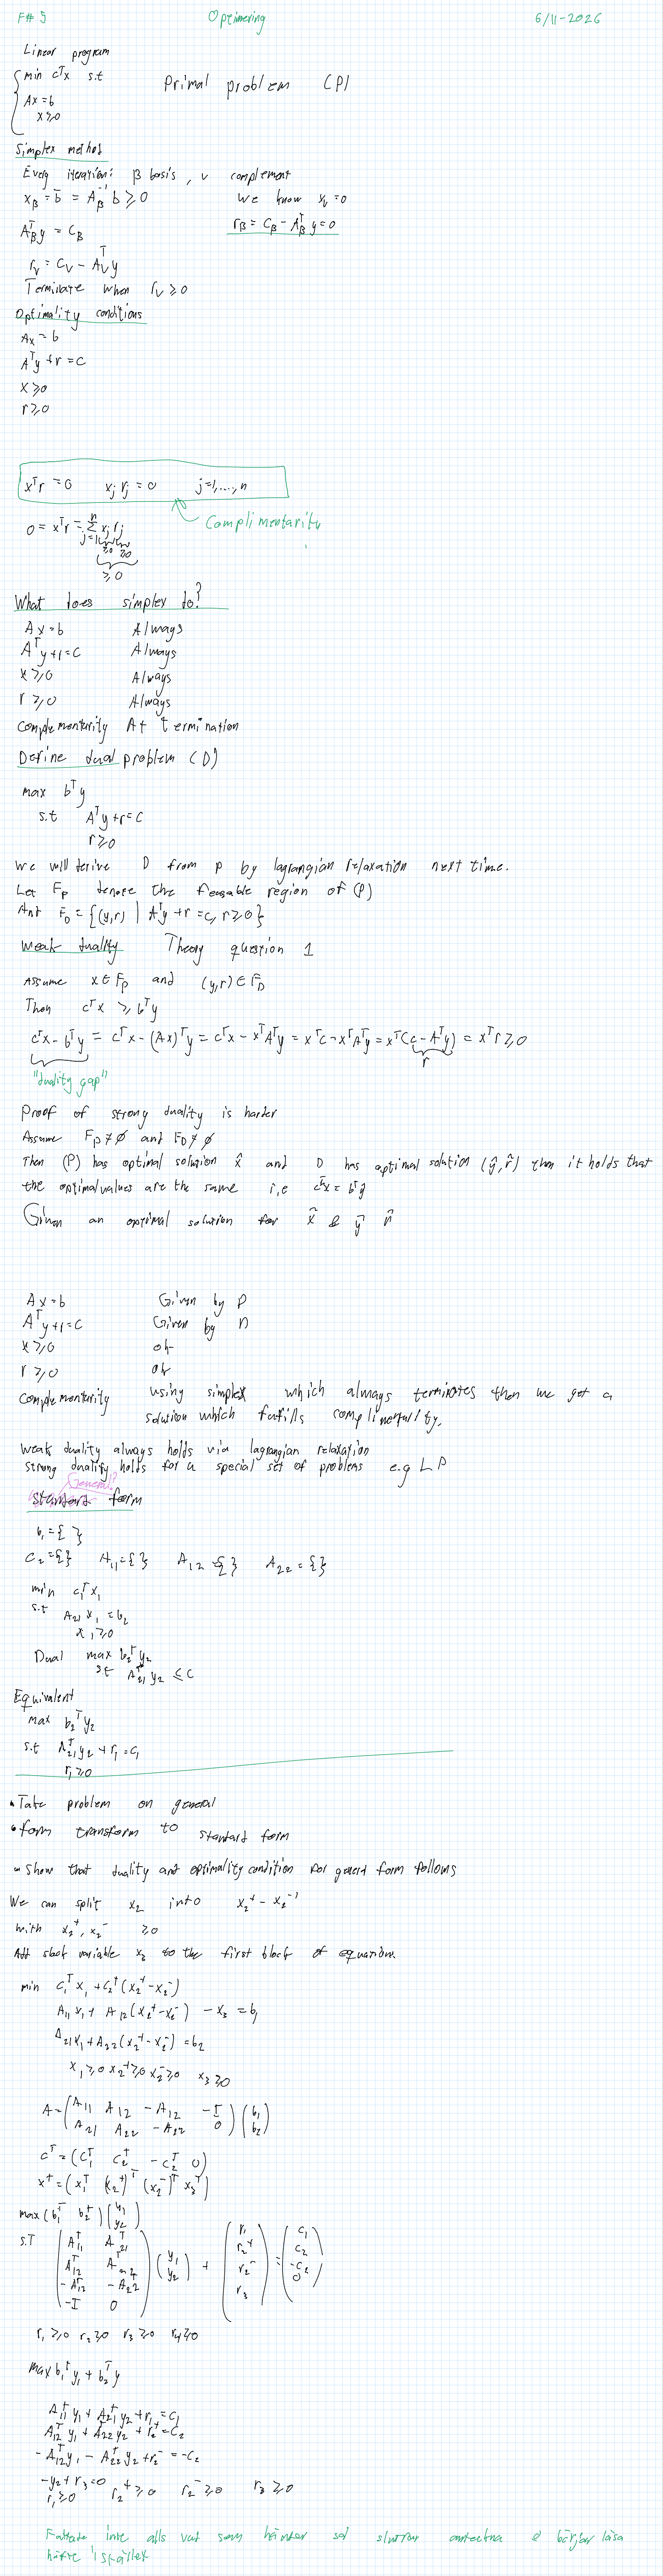 F# 5 Optimering 6/11-2026
Linear program
min cᵀx s.t
Ax = b
x ≥ 0
Primal problem (P)
Simplex method
Every iteration: β basis, ν complement
x_β = b̄ = A_β⁻¹ b ≥ 0 We know x_ν = 0
A_βᵀ y = C_β r_β = C_β - A_βᵀ y = 0
r_ν = C_ν - A_νᵀ y
Terminate when r_ν ≥ 0
Optimality conditions
Ax = b
Aᵀy + r = C
X ≥ 0
r ≥ 0
xᵀr = 0 x_j r_j = 0 j=1,...,n
Complimentarity
0 = xᵀr = Σ_{j=1}^n x_j r_j
≥0 ≥0
≥ 0
What does simplex do?
Ax = b Always
Aᵀy + r = C Always
x ≥ 0 Always
r ≥ 0 Always
Complementarity At termination
Define dual problem (D)
max bᵀy
s.t Aᵀy + r = C
r ≥ 0
We will derive D from P by lagrangian relaxation next time.
Let F_P denote the feasable region of (P)
And F_D = {(y,r) | Aᵀy + r = c, r ≥ 0}
Weak duality Theory question 1
Assume x ∈ F_P and (y,r) ∈ F_D
Then cᵀx ≥ bᵀy
cᵀx - bᵀy = cᵀx - (Ax)ᵀy = cᵀx - xᵀAᵀy = xᵀc - xᵀAᵀy = xᵀ(c - Aᵀy) = xᵀr ≥ 0
r
"duality gap"
Proof of strong duality is harder
Assume F_P ≠ ∅ and F_D ≠ ∅
Then (P) has optimal solution x̂ and D has optimal solution (ŷ, r̂) then it holds that
the optimal values are the same i,e cᵀx̂ = bᵀŷ
Given an optimal solution for x̂ & ŷ r̂
Ax = b Given by P
Aᵀy + r = C Given by D
x ≥ 0 ok
r ≥ 0 ok
Complementarity using simplex which always terminates then we get a
solution which fulfills
Weak duality always holds via lagrangian relaxation
strong duality holds for a special set of problems e.g LP
General?
Standard form
b₁ = { }
C₂ = {} A₁₁ = {} A₁₂ = {} A₂₂ = {}
min c₁ᵀx₁
s.t A₂₁ x₁ = b₂
x₁ ≥ 0
Dual max b₂ᵀy₂
st A₂₁ᵀ y₂ ≤ C
Equivalent
max b₂ᵀy₂
s.t A₂₁ᵀ y₂ + r₁ = c₁
r₁ ≥ 0
• Take problem on general
• form transform to standard form
• Show that duality and optimality condition for general form follows
We can split x₂ into x₂⁺ - x₂⁻
with x₂⁺, x₂⁻ ≥ 0
Add slack variable x₃ to the first block of equation.
min c₁ᵀx₁ + c₂ᵀ(x₂⁺ - x₂⁻)
A₁₁x₁ + A₁₂(x₂⁺ - x₂⁻) - x₃ = b₁
A₂₁x₁ + A₂₂(x₂⁺ - x₂⁻) = b₂
x₁ ≥ 0 x₂⁺ ≥ 0 x₂⁻ ≥ 0 x₃ ≥ 0
A = (A₁₁ A₁₂ -A₁₂ -I) (b₁)
(A₂₁ A₂₂ -A₂₂ 0) (b₂)
cᵀ = (C₁ᵀ C₂ᵀ -C₂ᵀ 0)
xᵀ = (x₁ᵀ (x₂⁺)ᵀ (x₂⁻)ᵀ x₃ᵀ)
max (b₁ᵀ b₂ᵀ) (y₁ y₂)
s.T (A₁₁ᵀ A₂₁ᵀ) (y₁) + (r₁) = (C₁)
(A₁₂ᵀ A₂₂ᵀ) (y₂) (r₂⁺) (C₂)
(-A₁₂ᵀ -A₂₂) (r₂⁻) (-C₂)
(-I 0) (r₃) (0)
r₁ ≥ 0 r₂ ≥ 0 r₃ ≥ 0 r₄ ≥ 0
max b₁ᵀy₁ + b₂ᵀy
A₁₁ᵀ y₁ + A₂₁ᵀ y₂ + r₁ = C₁
A₁₂ᵀ y₁ + A₂₂ᵀ y₂ + r₂⁺ = C₂
-A₁₂ᵀ y₁ - A₂₂ᵀ y₂ + r₂⁻ = -C₂
-y₂ + r₃ = 0
r₁ ≥ 0 r₂⁺ ≥ 0 r₂⁻ ≥ 0 r₃ ≥ 0
Fattade inte alls vad som händer så slutar anteckna & börjar läsa
häfte istället